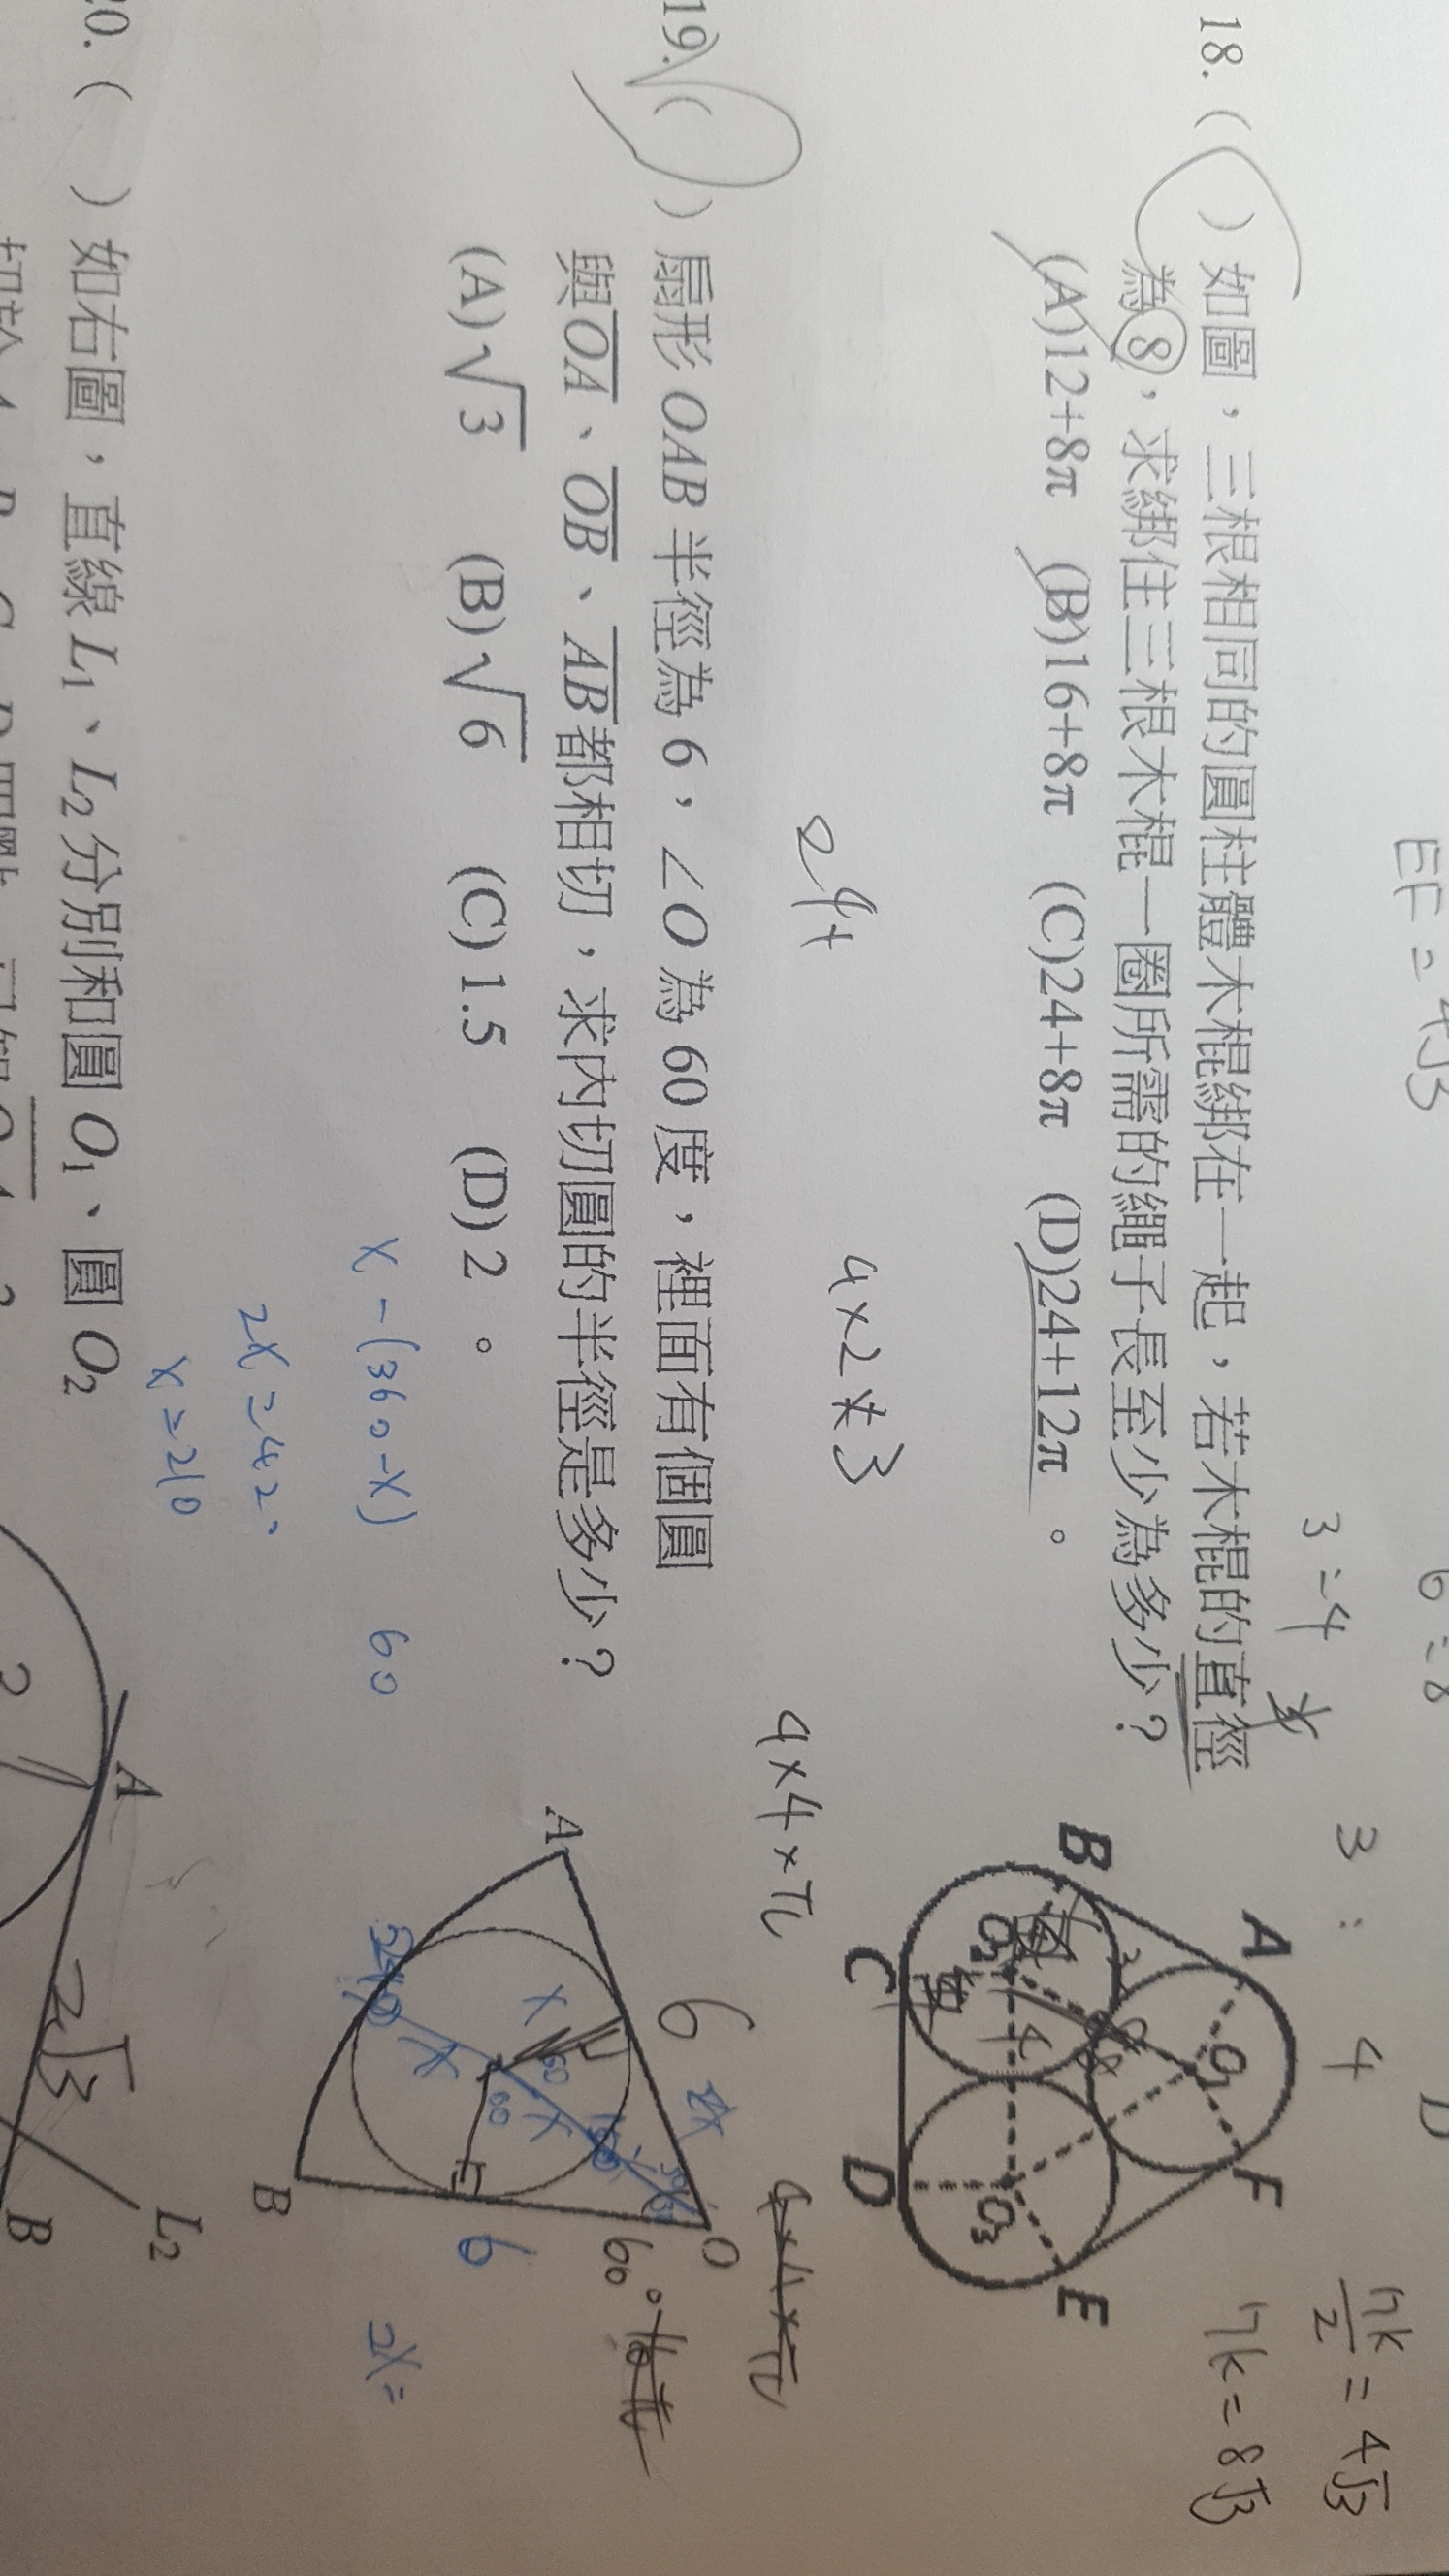 EF = 4√3
6 : 8
D
3 : 4
3 : 4
7k/2 = 4√3
7k = 8√3
18. (　) 如圖，三根相同的圓柱體木棍綁在一起，若木棍的直徑
為 8，求綁住三根木棍一圈所需的繩子長至少為多少？
(A)12+8π (B)16+8π (C)24+8π (D)24+12π 。
A
B
C
D
E
F
O₁
O₂
O₃
4
24+
4×2×3
4×4×π
4×4×π
19. (　) 扇形 OAB 半徑為 6，∠O 為 60 度，裡面有個圓
與OA、OB、AB都相切，求內切圓的半徑是多少？
(A)√3 (B)√6 (C)1.5 (D)2 。
6
O
60°
A
B
6
X
X
X
60
60
2X=
X-(360-X) 60
2X=420
X=210
20. (　) 如右圖，直線 L₁、L₂ 分別和圓 O₁、圓 O₂
A
2√3
B
L₂
2